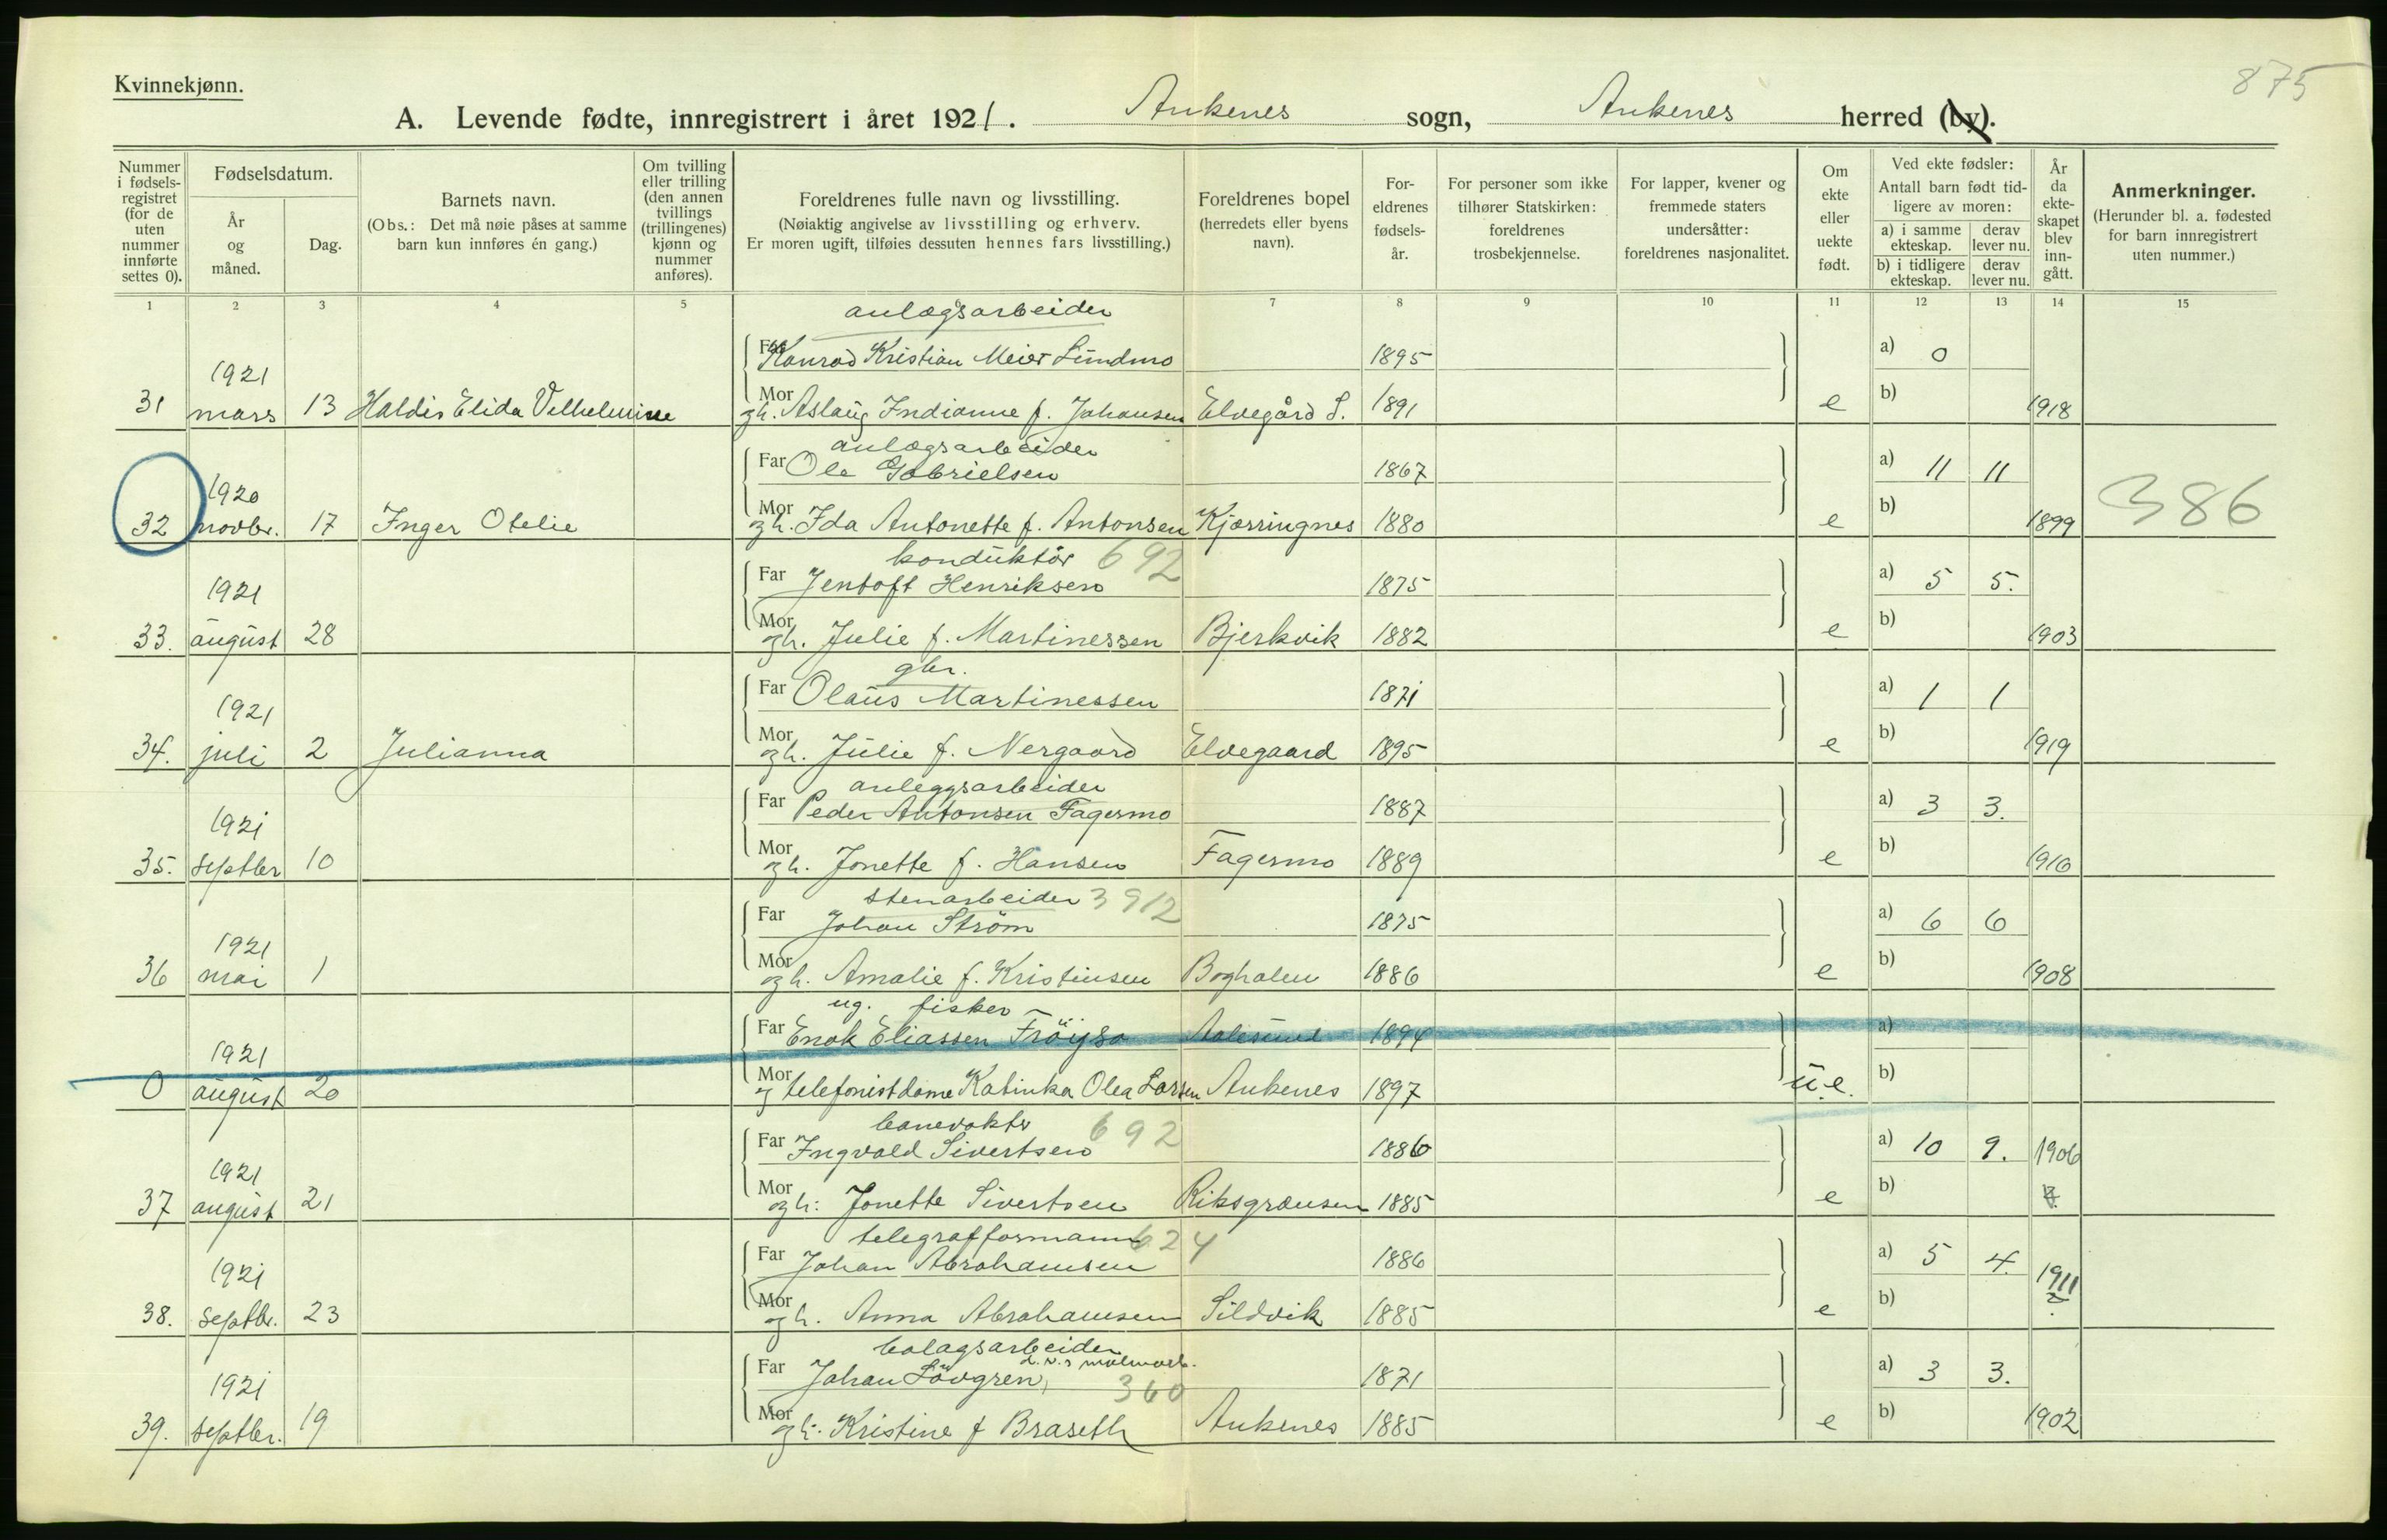 875
Kvinnekjønn.
A. Levende fødte, innregistrert i året 1921. Ankenes sogn, Ankenes herred (by).
Nummer i fødsels-registret (for de uten nummer innførte settes 0).
Fødselsdatum.
År og måned.
Dag.
Barnets navn.
(Obs.: Det må nøie påses at samme barn kun innføres én gang.)
Om tvilling eller trilling (den annen tvillings (trillingenes) kjønn og nummer anføres).
Foreldrenes fulle navn og livsstilling.
(Nøiaktig angivelse av livsstilling og erhverv. Er moren ugift, tilføies dessuten hennes fars livsstilling.)
Foreldrenes bopel (herredets eller byens navn).
For-eldrenes fødsels-år.
For personer som ikke tilhører Statskirken: foreldrenes trosbekjennelse.
For lapper, kvener og fremmede staters undersåtter: foreldrenes nasjonalitet.
Om ekte eller uekte født.
Ved ekte fødsler:
Antall barn født tid-ligere av moren:
a) i samme ekteskap. derav lever nu.
b) i tidligere ekteskap. derav lever nu.
År da ekte-skapet blev inn-gått.
Anmerkninger.
(Herunder bl. a. fødested for barn innregistrert uten nummer.)
1 2 3 4 5 7 8 9 10 11 12 13 14 15
anlægsarbeider
Far Konrad Kristian Meier Lundmo 1895 a) 0
1921
31 mars 13 Haldis Elida Velhelmine Mor gh. Aslaug Indianne f. Johansen Elvegård S. 1891 e b) 1918
anlægsarbeider
Far Ole Gabrielsen 1867 a) 11 11
1920
32 novbr. 17 Inger Otelie Mor gh. Ida Antonette f. Antonsen Kjærringnes 1880 e b) 1899 386
konduktör 692
Far Jentoft Henriksen 1875 a) 5 5.
1921
33. august 28 Mor gh. Julie f. Martinessen Bjerkvik 1882 e b) 1903
gbr.
Far Olaus Martinessen 1871 a) 1 1
1921
34. juli 2 Julianna Mor gh. Julie f. Nergaard Elvegaard 1895 e b) 1919
anleggsarbeider
Far Peder Antonsen Fagermo 1887 a) 3 3.
1921
35. septbr 10 Mor gh. Jonette f. Hansen Fagermo 1889 e b) 1910
stenarbeider 3912
Far Johan Strøm 1875 a) 6 6
1921
36 mai 1 Mor gh. Amalie f. Kristinsen Boghalen 1886 e b) 1908
ug. fisker
Far Enok Eliassen Fröysa Aalesund 1894 a)
1921
0 august 20 Mor og telefonistdame Katinka Olea Larsen Ankenes 1897 u.e. b)
banevokter 692
Far Ingvald Sivertsen 1886 a) 10 9. 1906
1921
37 august 21 Mor gh: Jonette Sivertsen Riksgrænsen 1885 e b)
telegrafformann 624
Far Johan Abrahamsen 1886 a) 5 4. 1911
1921
38. septbr. 23 Mor gh. Anna Abrahamsen Sildvik 1885 e b)
bolagsarbeider
d.v.s malmarb.
Far Johan Lövgren, 360 1871 a) 3 3.
1921
39. septbr. 19 Mor gh: Kristine f Braseth Ankenes 1885 e b) 1902